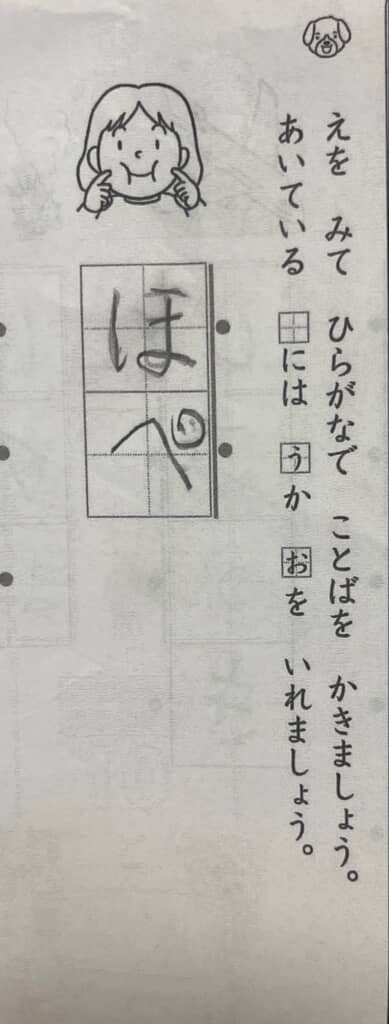 えを　みて　ひらがなで　ことばを　かきましょう。
あいている　□には　うか　おを　いれましょう。
ほぺ